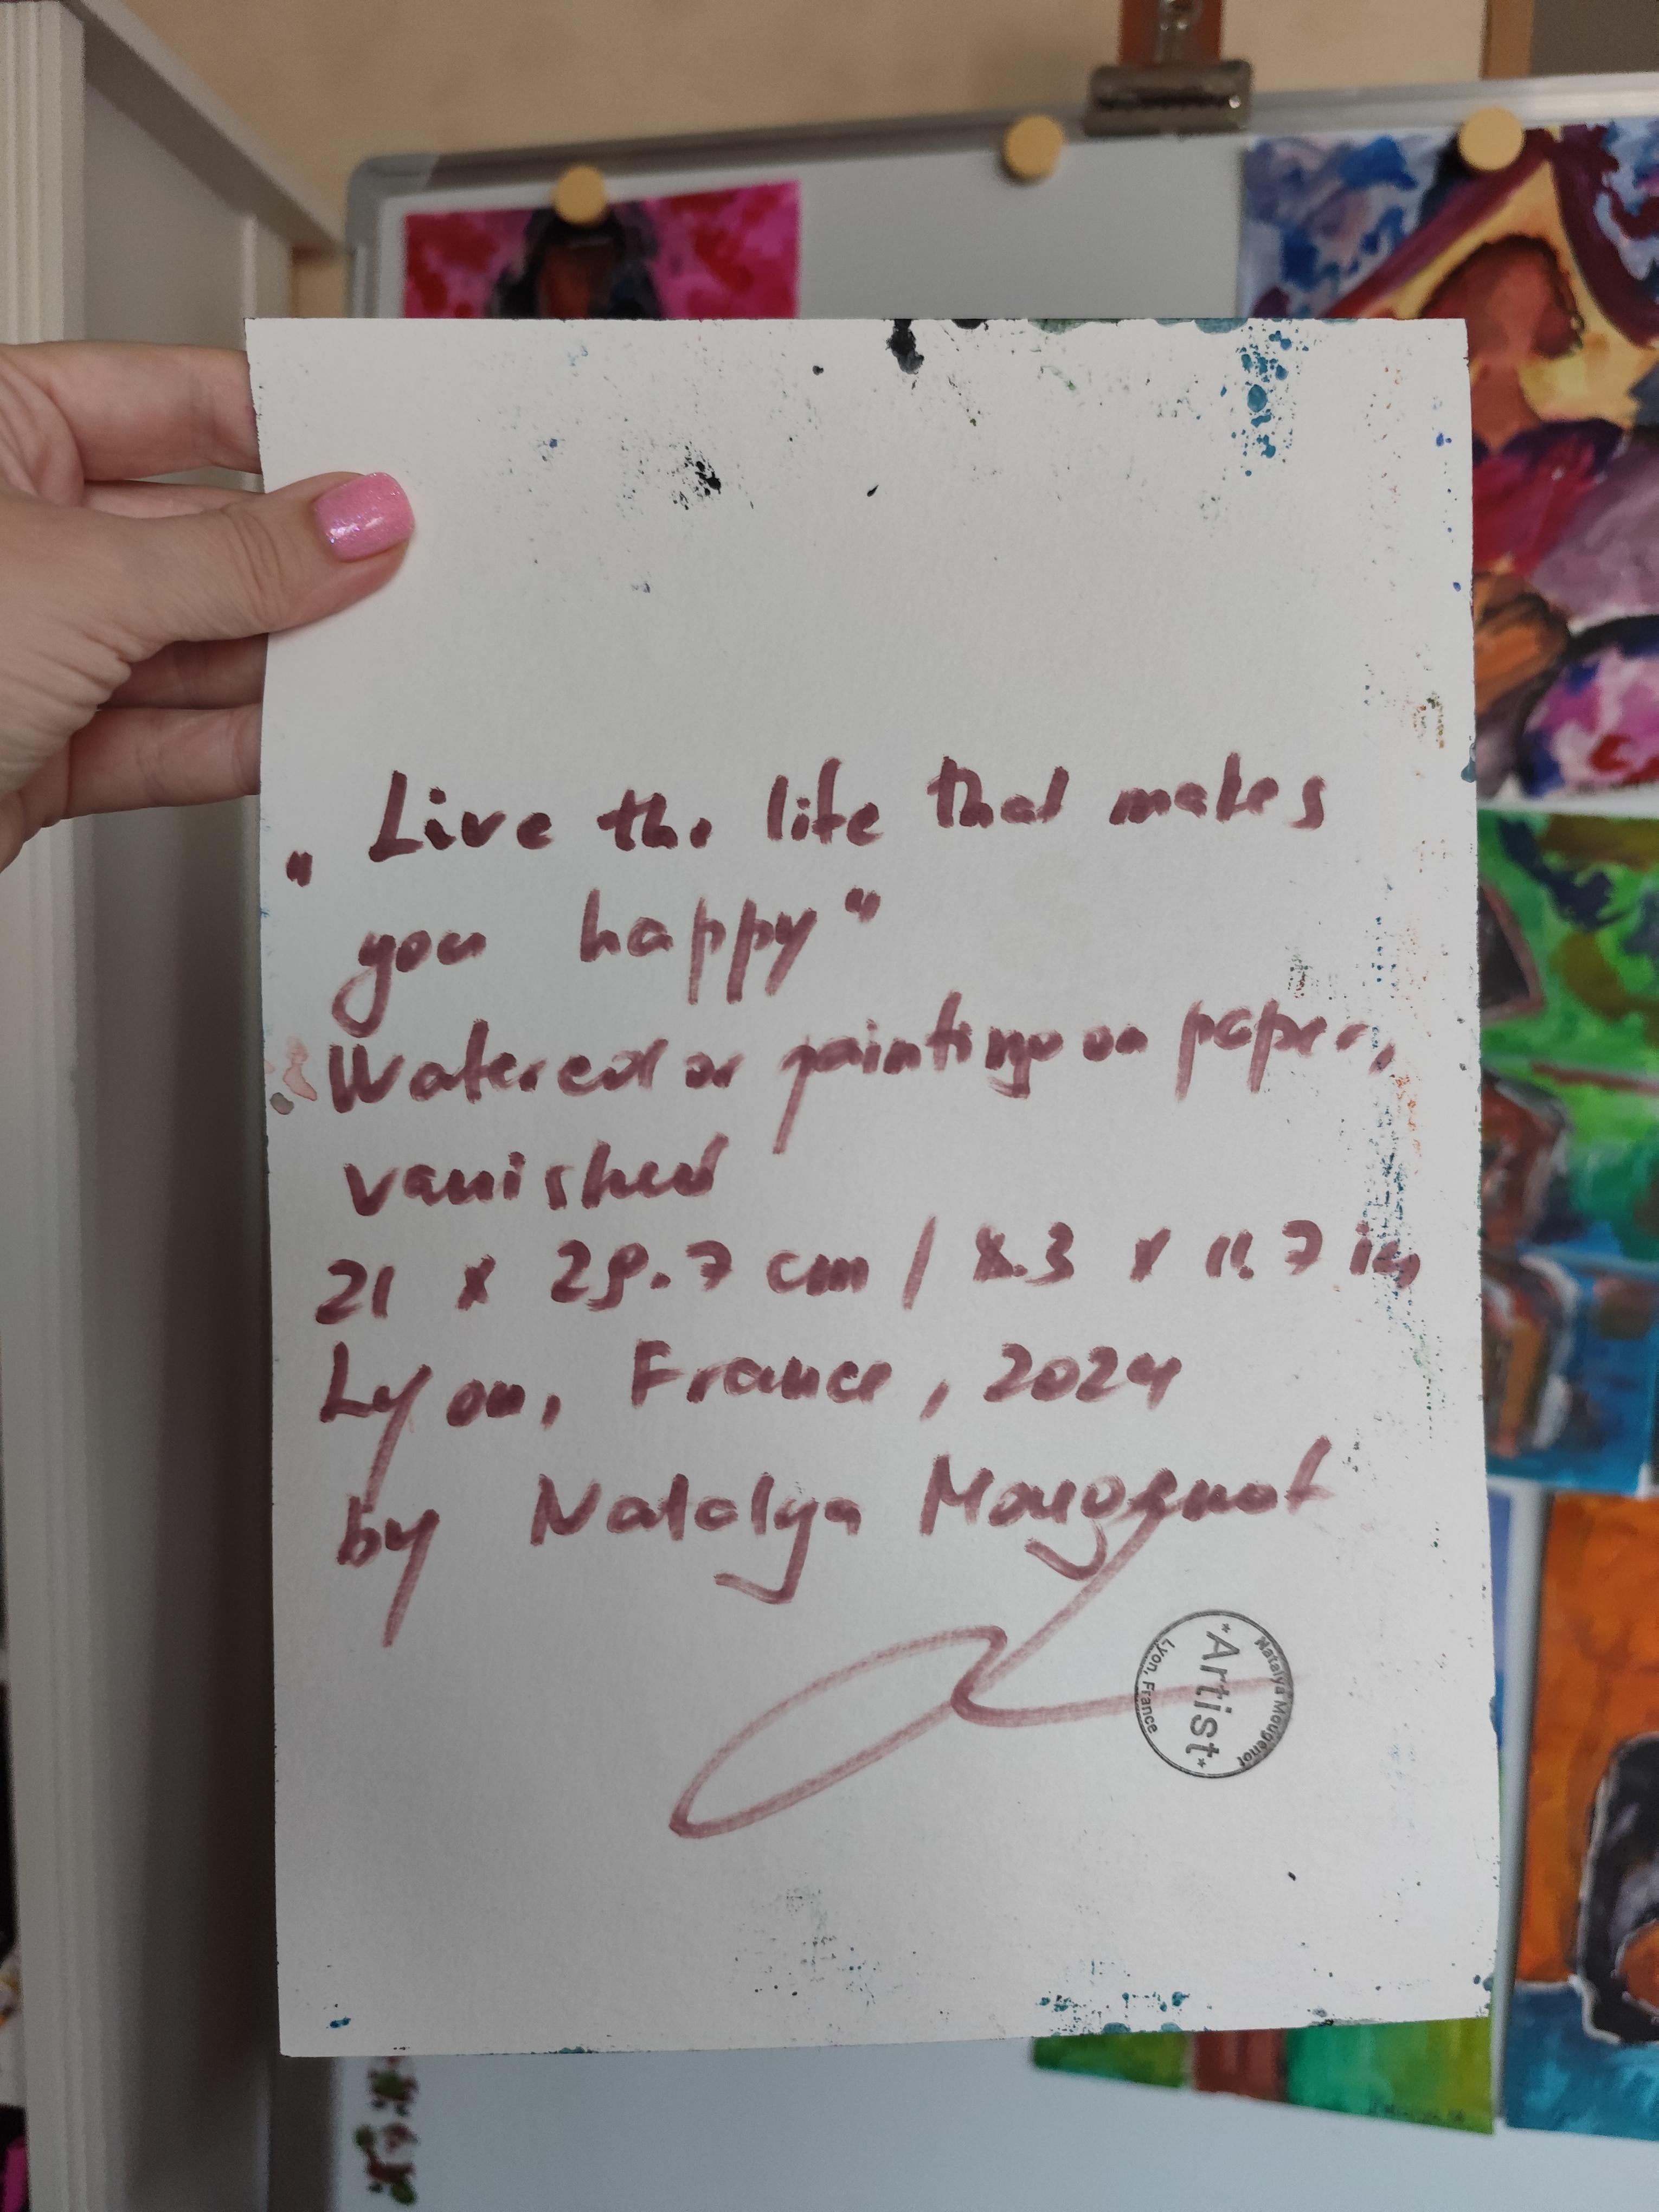 „Live the life that makes
you happy“
Watercolor painting on paper,
vanished
21 x 29.7 cm / 8.3 x 11.7 in,
Lyon, France, 2024
by Natalya Mougenot
Natalya Mougenot
*Artist*
Lyon, France